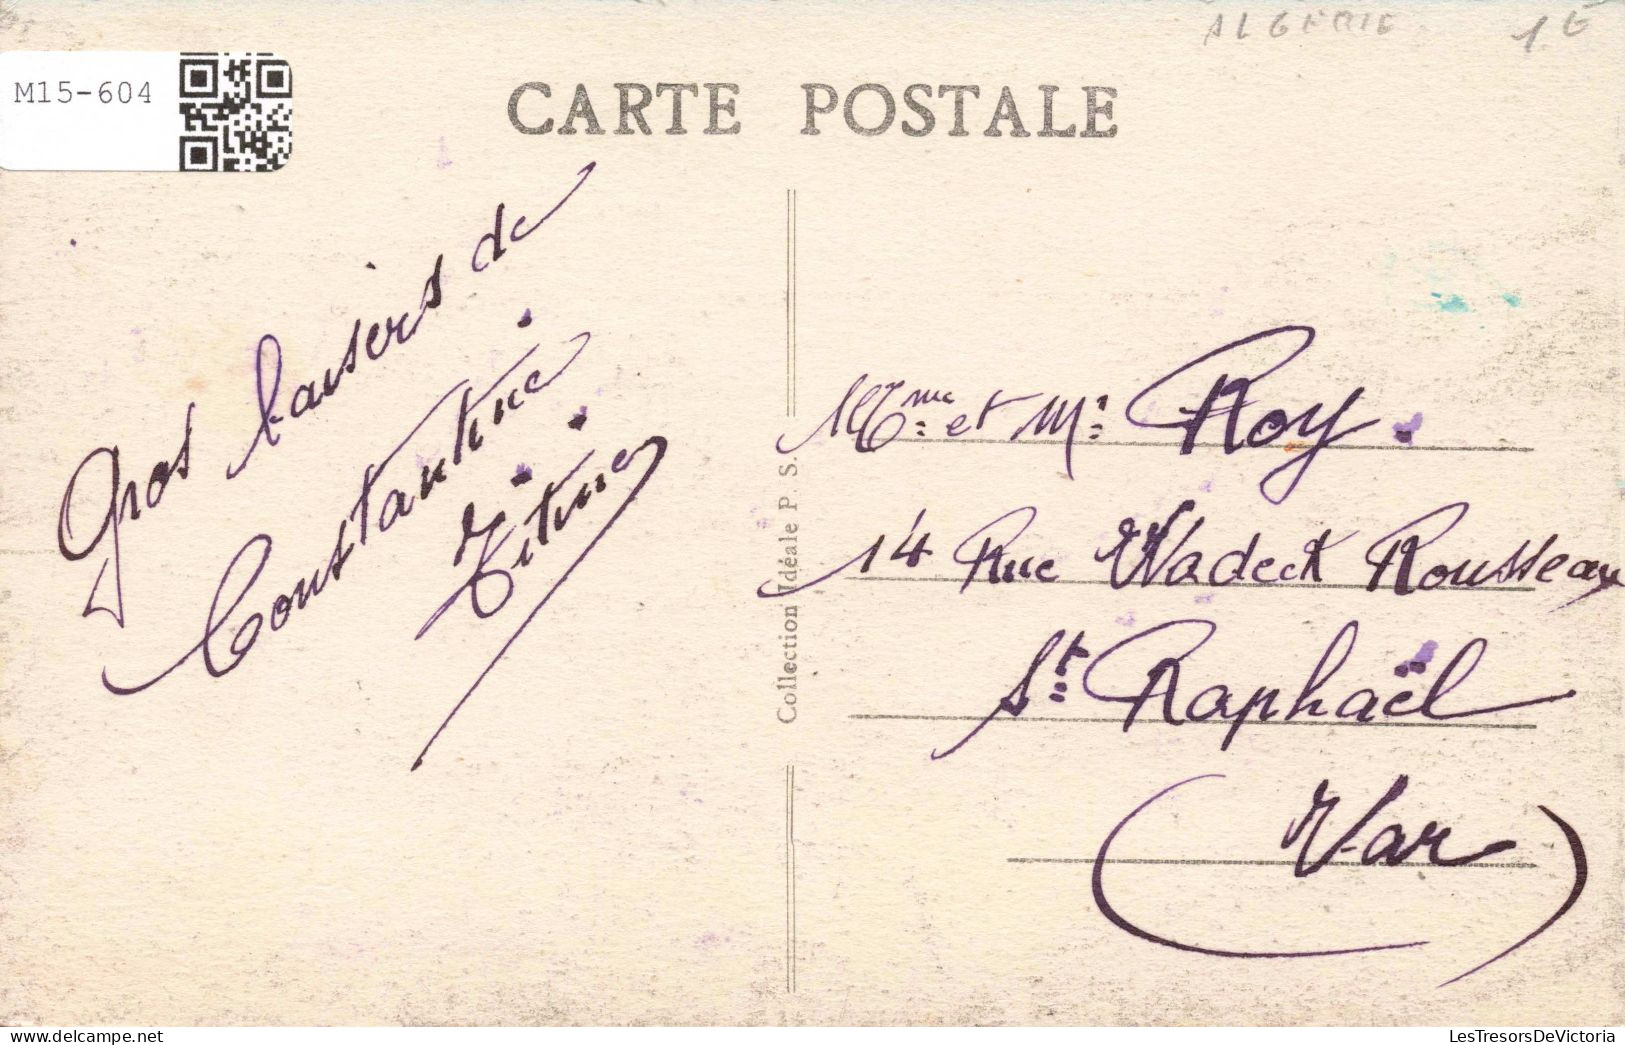 ALGERIE 1€
M15-604
CARTE POSTALE
Gros baisers de
Constantine
Titine
Collection Idéale P. S.
Mme et Mr Roy.
14 Rue Wadeck Rousseau
St Raphaël
(Var)
delcampe.net
LesTresorsDeVictoria